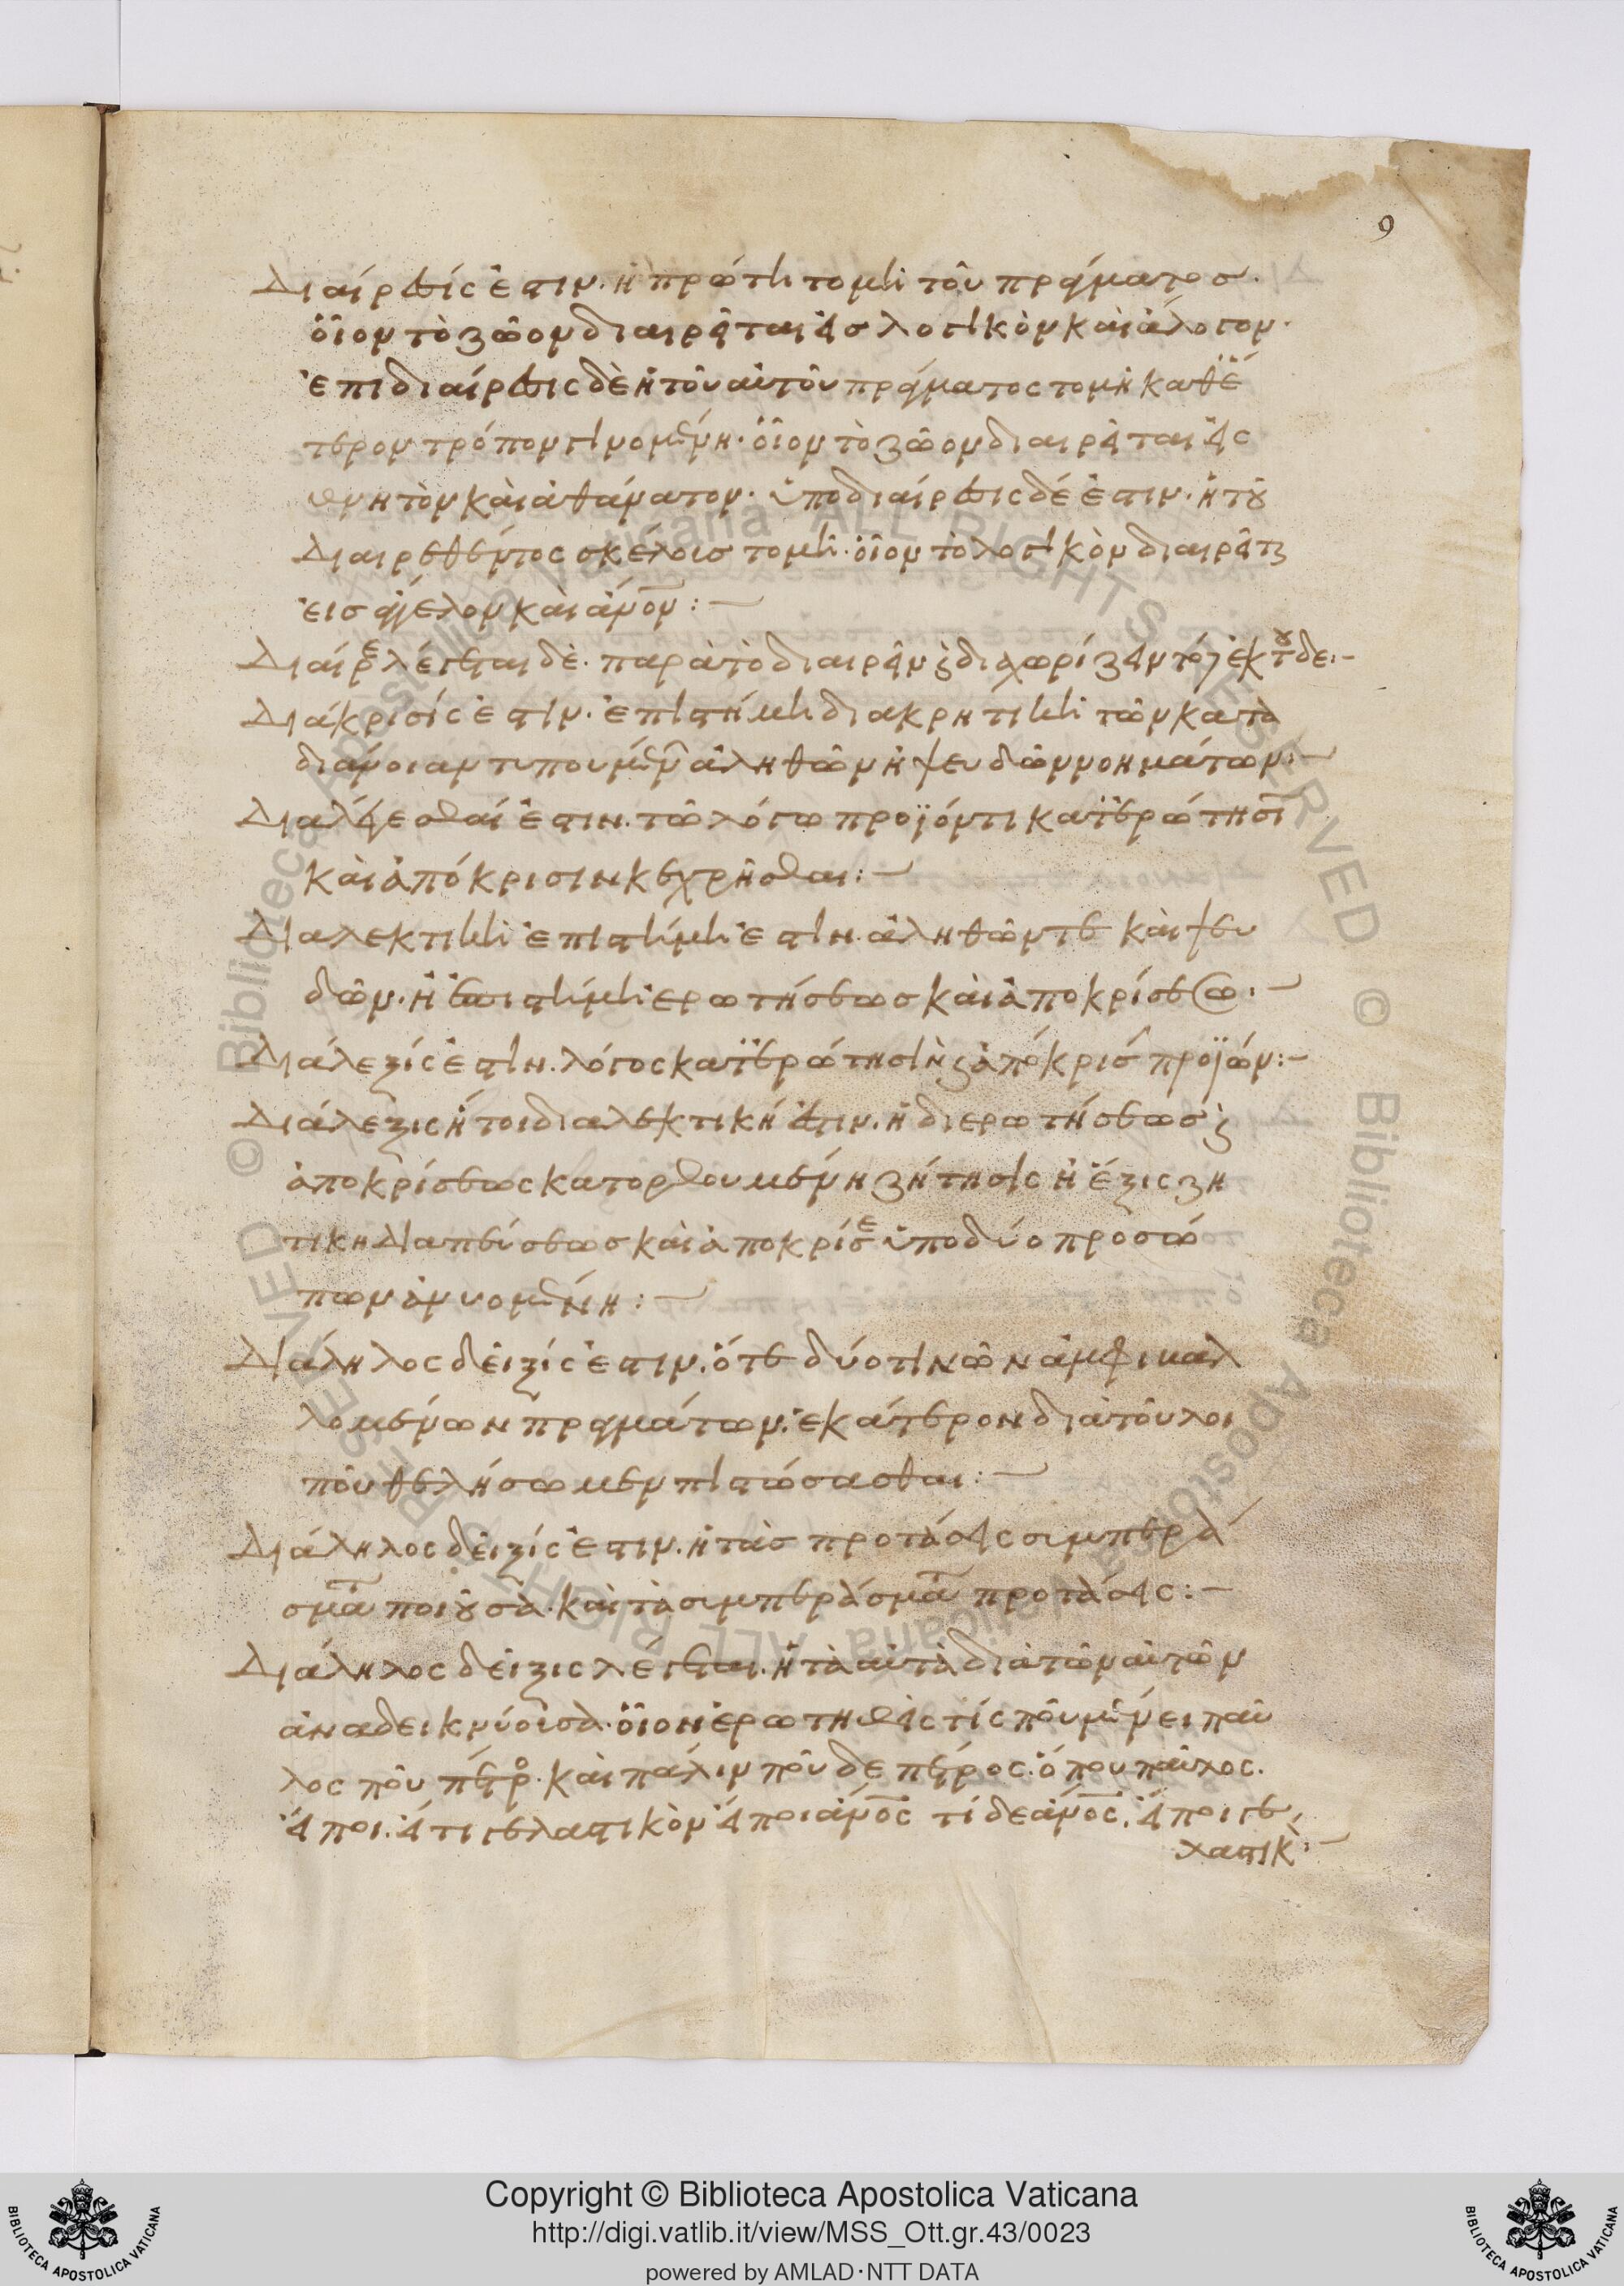 9
Διαίρεσίς ἐστιν. ἡ πρώτη τομὴ τοῦ πράγματος.
ὅϊον τὸ ζῶον διαιρεῖται εἰς λογικὸν καὶ ἄλογον.
ἐπιδιαίρεσις δὲ ἡ τοῦ αὐτοῦ πράγματος τομὴ καθ' ἕ
τερον τρόπον γινομένη. ὅϊον τὸ ζῶον διαιρεῖται εἰς
θνητὸν καὶ ἀθάνατον. ὑποδιαίρεσις δέ ἐστιν. ἡ τοῦ
διαιρεθέντος σκέλους τομή. ὅϊον τὸ λογικὸν διαιρεῖται
εἰς ἄγγελον καὶ ἄνον:
Διαίρε λέγεται δὲ. παρὰ τὸ διαιρεῖν καὶ διαχωρίζειν τόδε ἐκ τοῦδε:
Διάκρισίς ἐστιν. ἐπιστήμη διακρητικὴ τῶν κατὰ
διάνοιαν τυπουμένων ἀληθῶν ἢ ψευδῶν νοημάτων:
Διαλέγεσθαί ἐστιν. τῶ λόγω προϊόντι κατ' ἐρώτησι
καὶ ἀπόκρισιν κεχρῆσθαι:
Διαλεκτικὴ ἐπιστήμη ἐστὶν ἀληθῶν τε καὶ ψευ
δῶν. ἢ ἐπιστήμη ἐρωτήσεως καὶ ἀποκρίσεως:
Διάλεξίς ἐστιν. λόγος κατ' ἐρώτησιν καὶ ἀπόκρισ προϊών:
Διάλεξις ἤτοι διαλεκτική ἐστιν. ἡ δι ερωτήσεως καὶ
ἀποκρίσεως κατορθουμένη ζήτησις ἢ ἕξις ζη
τικη διαπεύσεως καὶ ἀποκρίσε ὑπο δύο προσώ
πων ἀνυομένη:
Διάληλος δεῖξίς ἐστιν. ὅτε δύο τινῶν ἀμφιβαλ
λομένων πραγμάτων. ἑκάτερον διὰ τοῦ λοι
ποῦ θελήσωμεν πιστώσασθαι:
Διάληλος δεῖξίς ἐστιν. ἡ τὰς προτάσεις συμπερά
σματα ποιοῦσα. καὶ τὰ συμπεράσματα προτάσεις:
Διάληλος δεῖξις λέγεται. ἡ τὰ αὐτὰ διὰ τῶν αὐτῶν
ἀναδεικνύουσα. ὅϊον ἐρωτηθεὶς τίς ποῦ μένει παῦ
λος ποῦ πέτρο. καὶ πάλιν ποῦ δε πέτρος. ὅπου παῦλος.
εἴποι. εἴ τι γελαστικὸν εἴποι ἄνος τί δε ἄνος. εἴποι γε
λαστικ:
Copyright © Biblioteca Apostolica Vaticana
http://digi.vatlib.it/view/MSS_Ott.gr.43/0023
powered by AMLAD·NTT DATA